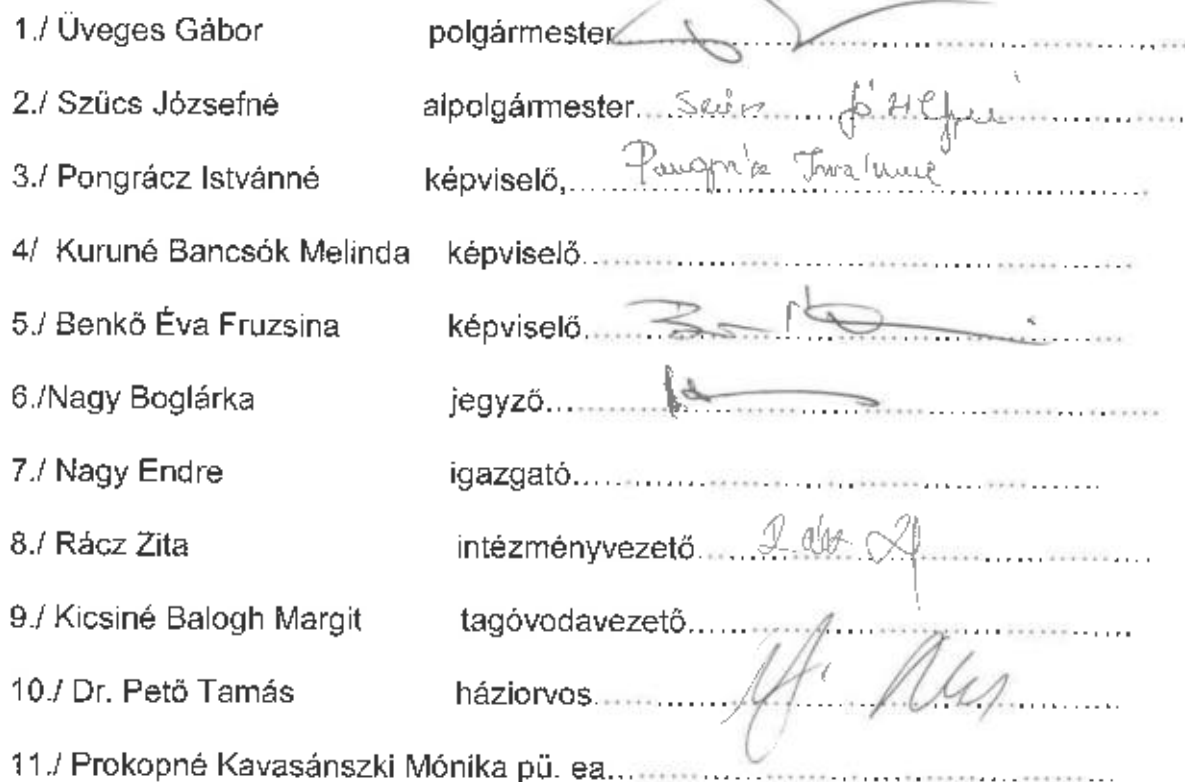 1./ Üveges Gábor polgármester
2./ Szűcs Józsefné alpolgármester
3./ Pongrácz Istvánné képviselő, Pongrácz Istvánné
4/ Kuruné Bancsók Melinda képviselő
5./ Benkő Éva Fruzsina képviselő
6./Nagy Boglárka jegyző
7./ Nagy Endre igazgató
8./ Rácz Zita intézményvezető
9./ Kicsiné Balogh Margit tagóvodavezető
10./ Dr. Pető Tamás háziorvos
11./ Prokopné Kavasánszki Mónika pü. ea